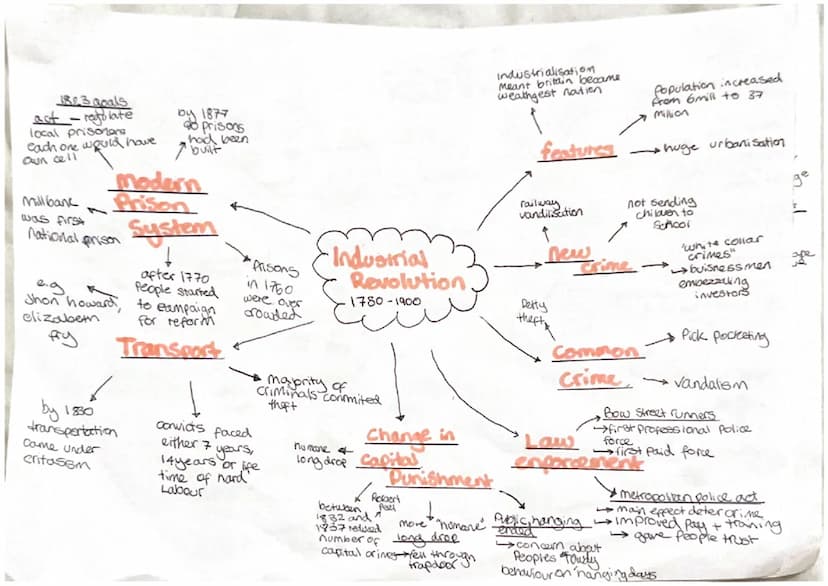 Industrial
Revolution
1780 - 1900
features
industrialisation
meant britain became
wealthgest nation
Population increased
from 6mill to 37
million
huge urbanisation
new
crime
railway
vandilisation
not sending
children to
School
"White collar
crimes"
buisnessmen
embezzling
investors
Common
Crime
Petty
theft
Pick pocketing
Vandalism
Law
enforcement
Bow street runners
first professional police
force
first paid force
metropolitan police act
main effect deter crime
improved pay + training
gave people trust
Change in
Capital
Punishment
humane
long drop
between
1832 and
1837 reduced
number of
capital crimes
Robert
Peel
more "humane"
long drop
fell through
trapdoor
Public hanging
ended
concern about
Peoples rowdy
behaviour on 'hanging days
Transport
by 1830
transportation
came under
critasism
convicts faced
either 7 years,
14 years or life
time of "hard"
Labour
majority of
criminals commited
theft
Modern
Prison
System
1823 goals
act - regulate
local prisoners
each one would have
own cell
by 1877
90 prisons
had been
built
millbank
was first
national prison
after 1770
People started
to campaign
for reform
e.g
Jhon howard,
elizabeth
fry
Prisons
in 1760
were over
crowded